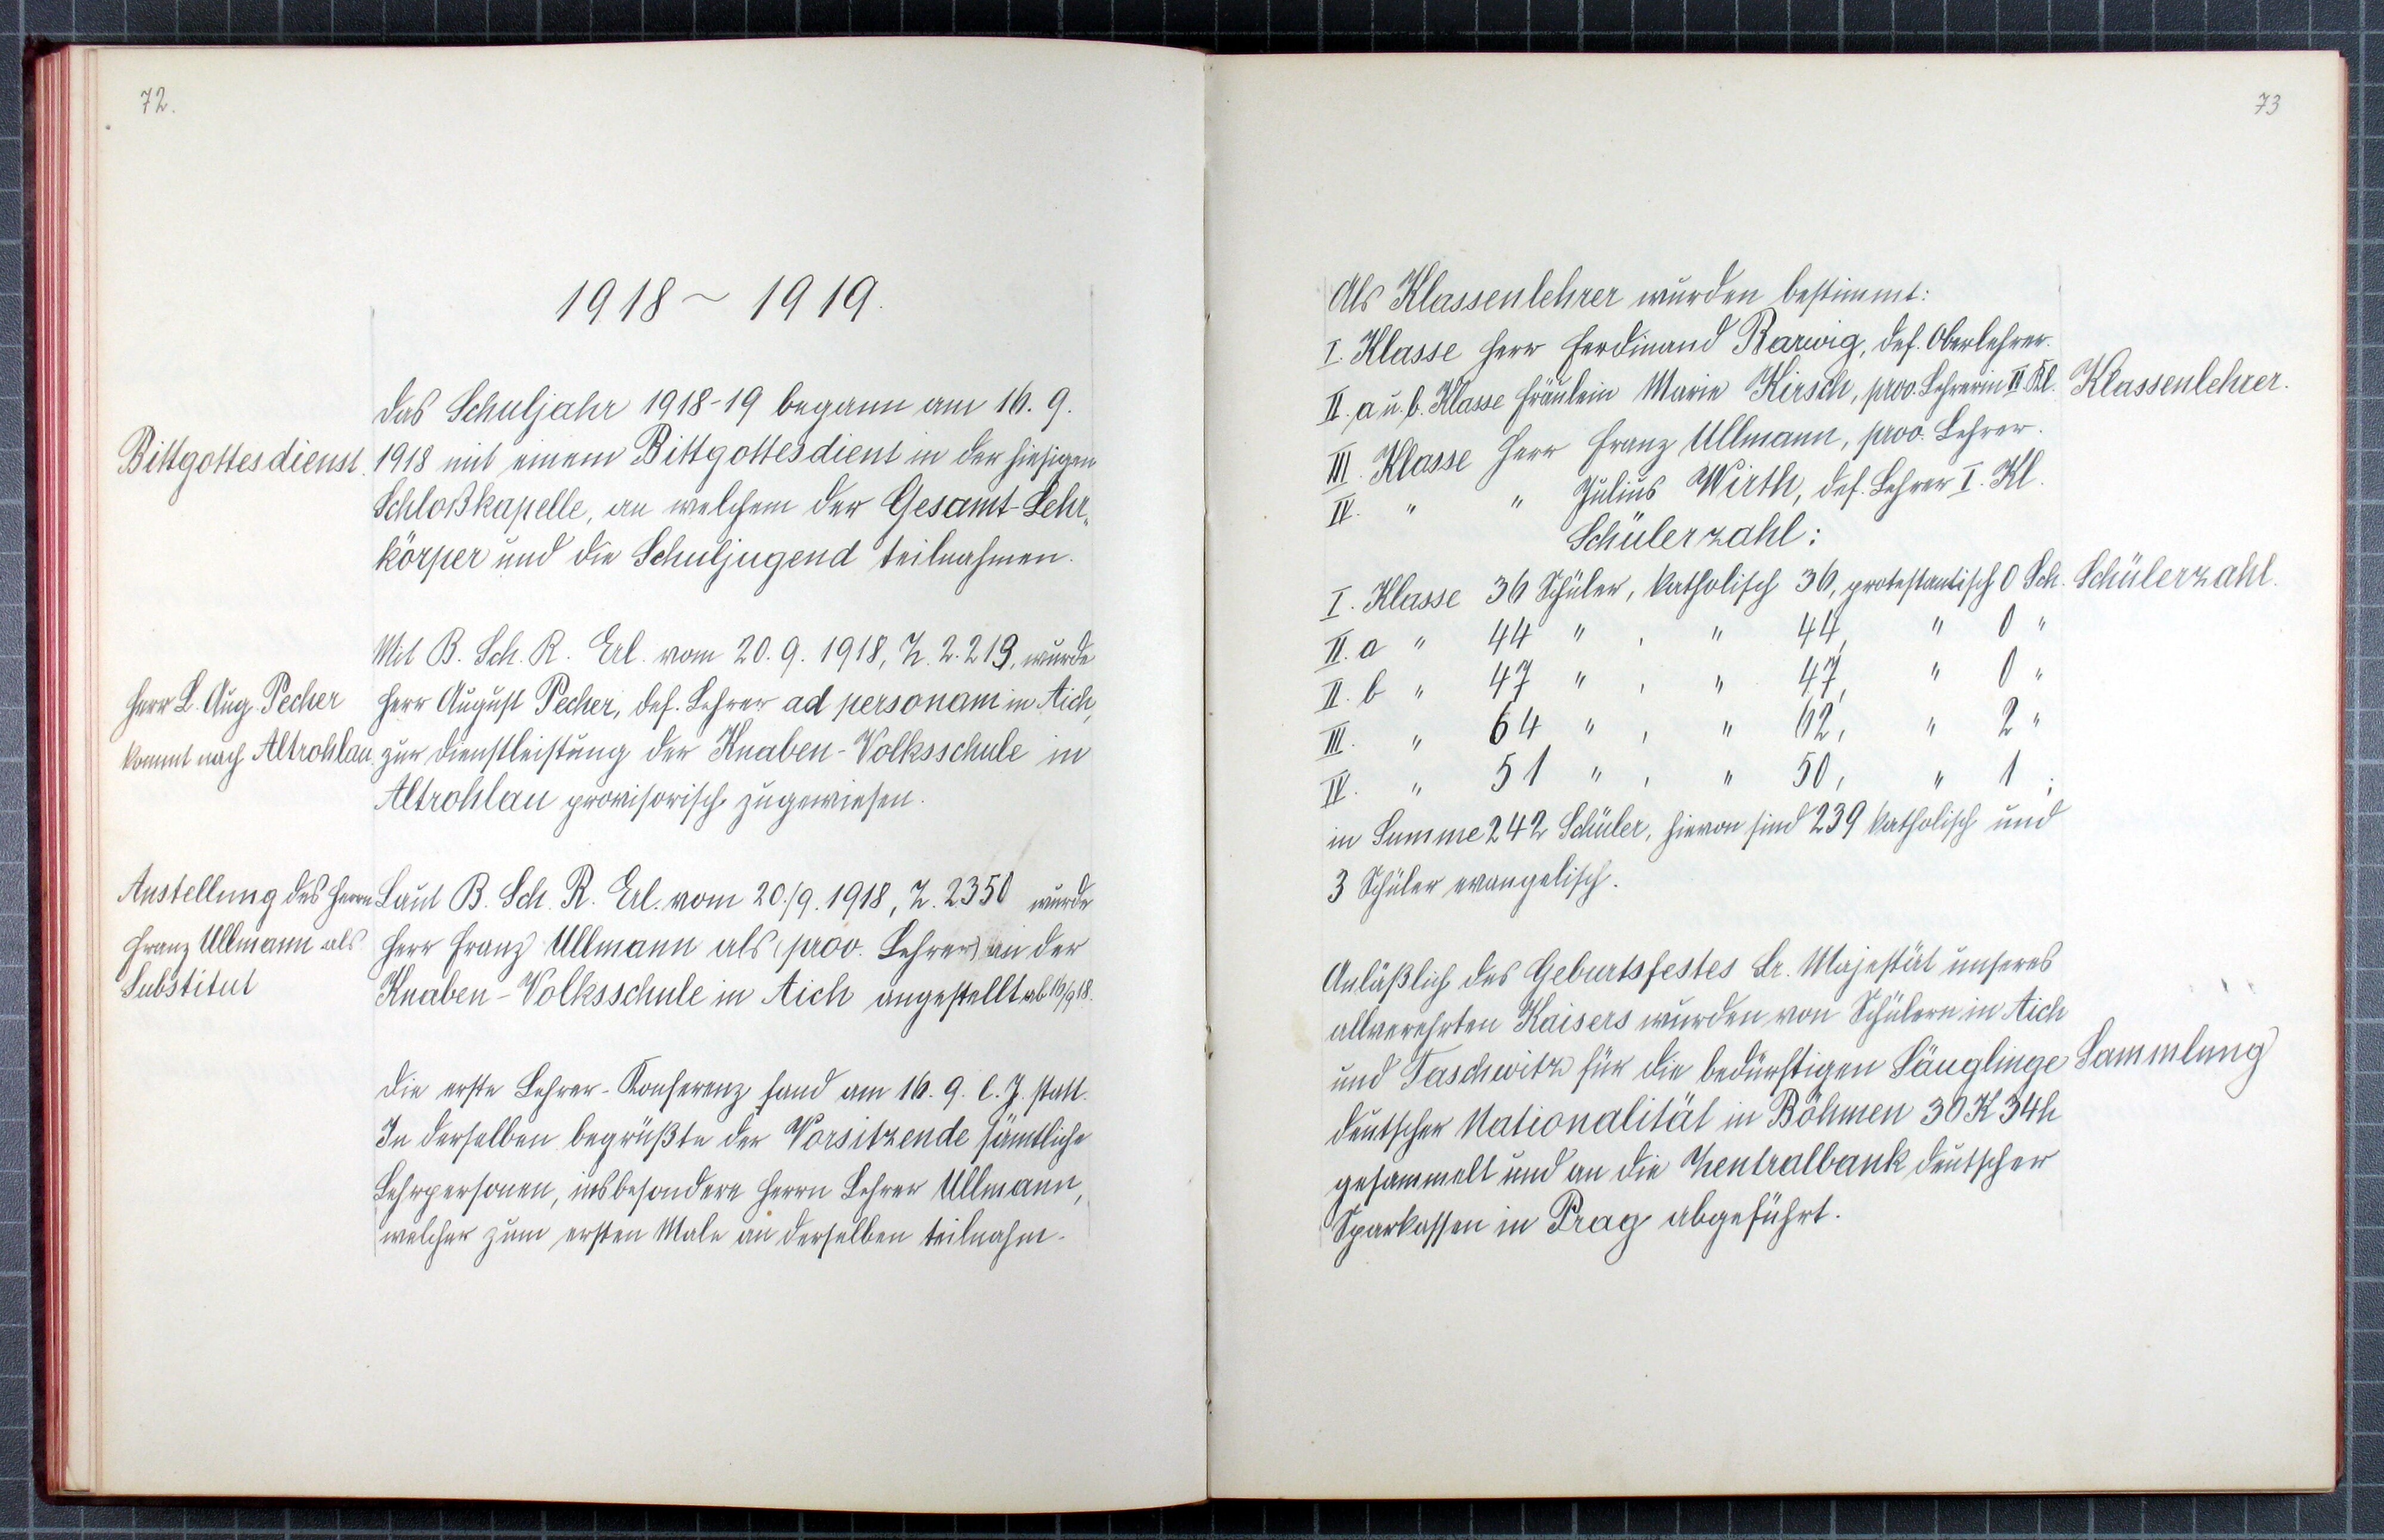 72.
1918 ~ 1919.
Das Schuljahr 1918-19 begann am 16. 9.
Bittgottesdienst.
1918 mit einem Bittgottesdient in der hiesigen
Schloßkapelle, an welchem der Gesamt-Lehr-
körper und die Schuljugend teilnahmen.
Mit B. Sch. R. Erl. vom 20. 9. 1918, Z. 2.219, wurde
Herr L. Aug. Pecher
Herr August Pecher, def. Lehrer ad personam in Aich,
kommt nach Altrohlau.
zur Dienstleistung der Knaben-Volksschule in
Altrohlau provisorisch zugewiesen.
Anstellung des Herrn
Laut B. Sch. R. Erl. vom 20./9. 1918, Z. 2350 wurde
Franz Ullmann als
Herr Franz Ullmann als (prov. Lehrer) an der
Substitut
Knaben-Volksschule in Aich angestellt ab 16/9 18.
Die erste Lehrer-Konferenz fand am 16. 9. l. J. statt.
In derselben begrüßte der Vorsitzende sämtliche
Lehrpersonen, insbesondere Herrn Lehrer Ullmann,
welcher zum ersten Male an derselben teilnahm.
73
Als Klassenlehrer wurden bestimmt:
I. Klasse Herr Ferdinand Barwig, def. Oberlehrer.
II. a u. b. Klasse Fräulein Marie Kirsch, prov. Lehrerin II. Kl.
Klassenlehrer.
III. Klasse Herr Franz Ullmann, prov. Lehrer.
IV. " " Julius Wirth, def. Lehrer I. Kl.
Schülerzahl:
I. Klasse 36 Schüler, katholisch 36, protestantisch 0 Sch.
Schülerzahl.
II. a " 44 " , " 44, " 0 "
II. b " 47 " , " 47, " 0 "
III. " 64 " , " 62, " 2 "
IV. " 51 " , " 50, " 1 ;
in Summe 242 Schüler, hievon sind 239 katholisch und
3 Schüler evangelisch.
Anläßlich des Geburtsfestes Sr. Majestät unseres
allverehrten Kaisers wurden von Schülern in Aich
und Taschwitz für die bedürftigen Säuglinge
Sammlung
deutscher Nationalität in Böhmen 30 K 34 h
gesammelt und an die Zentralbank deutscher
Sparkassen in Prag abgeführt.